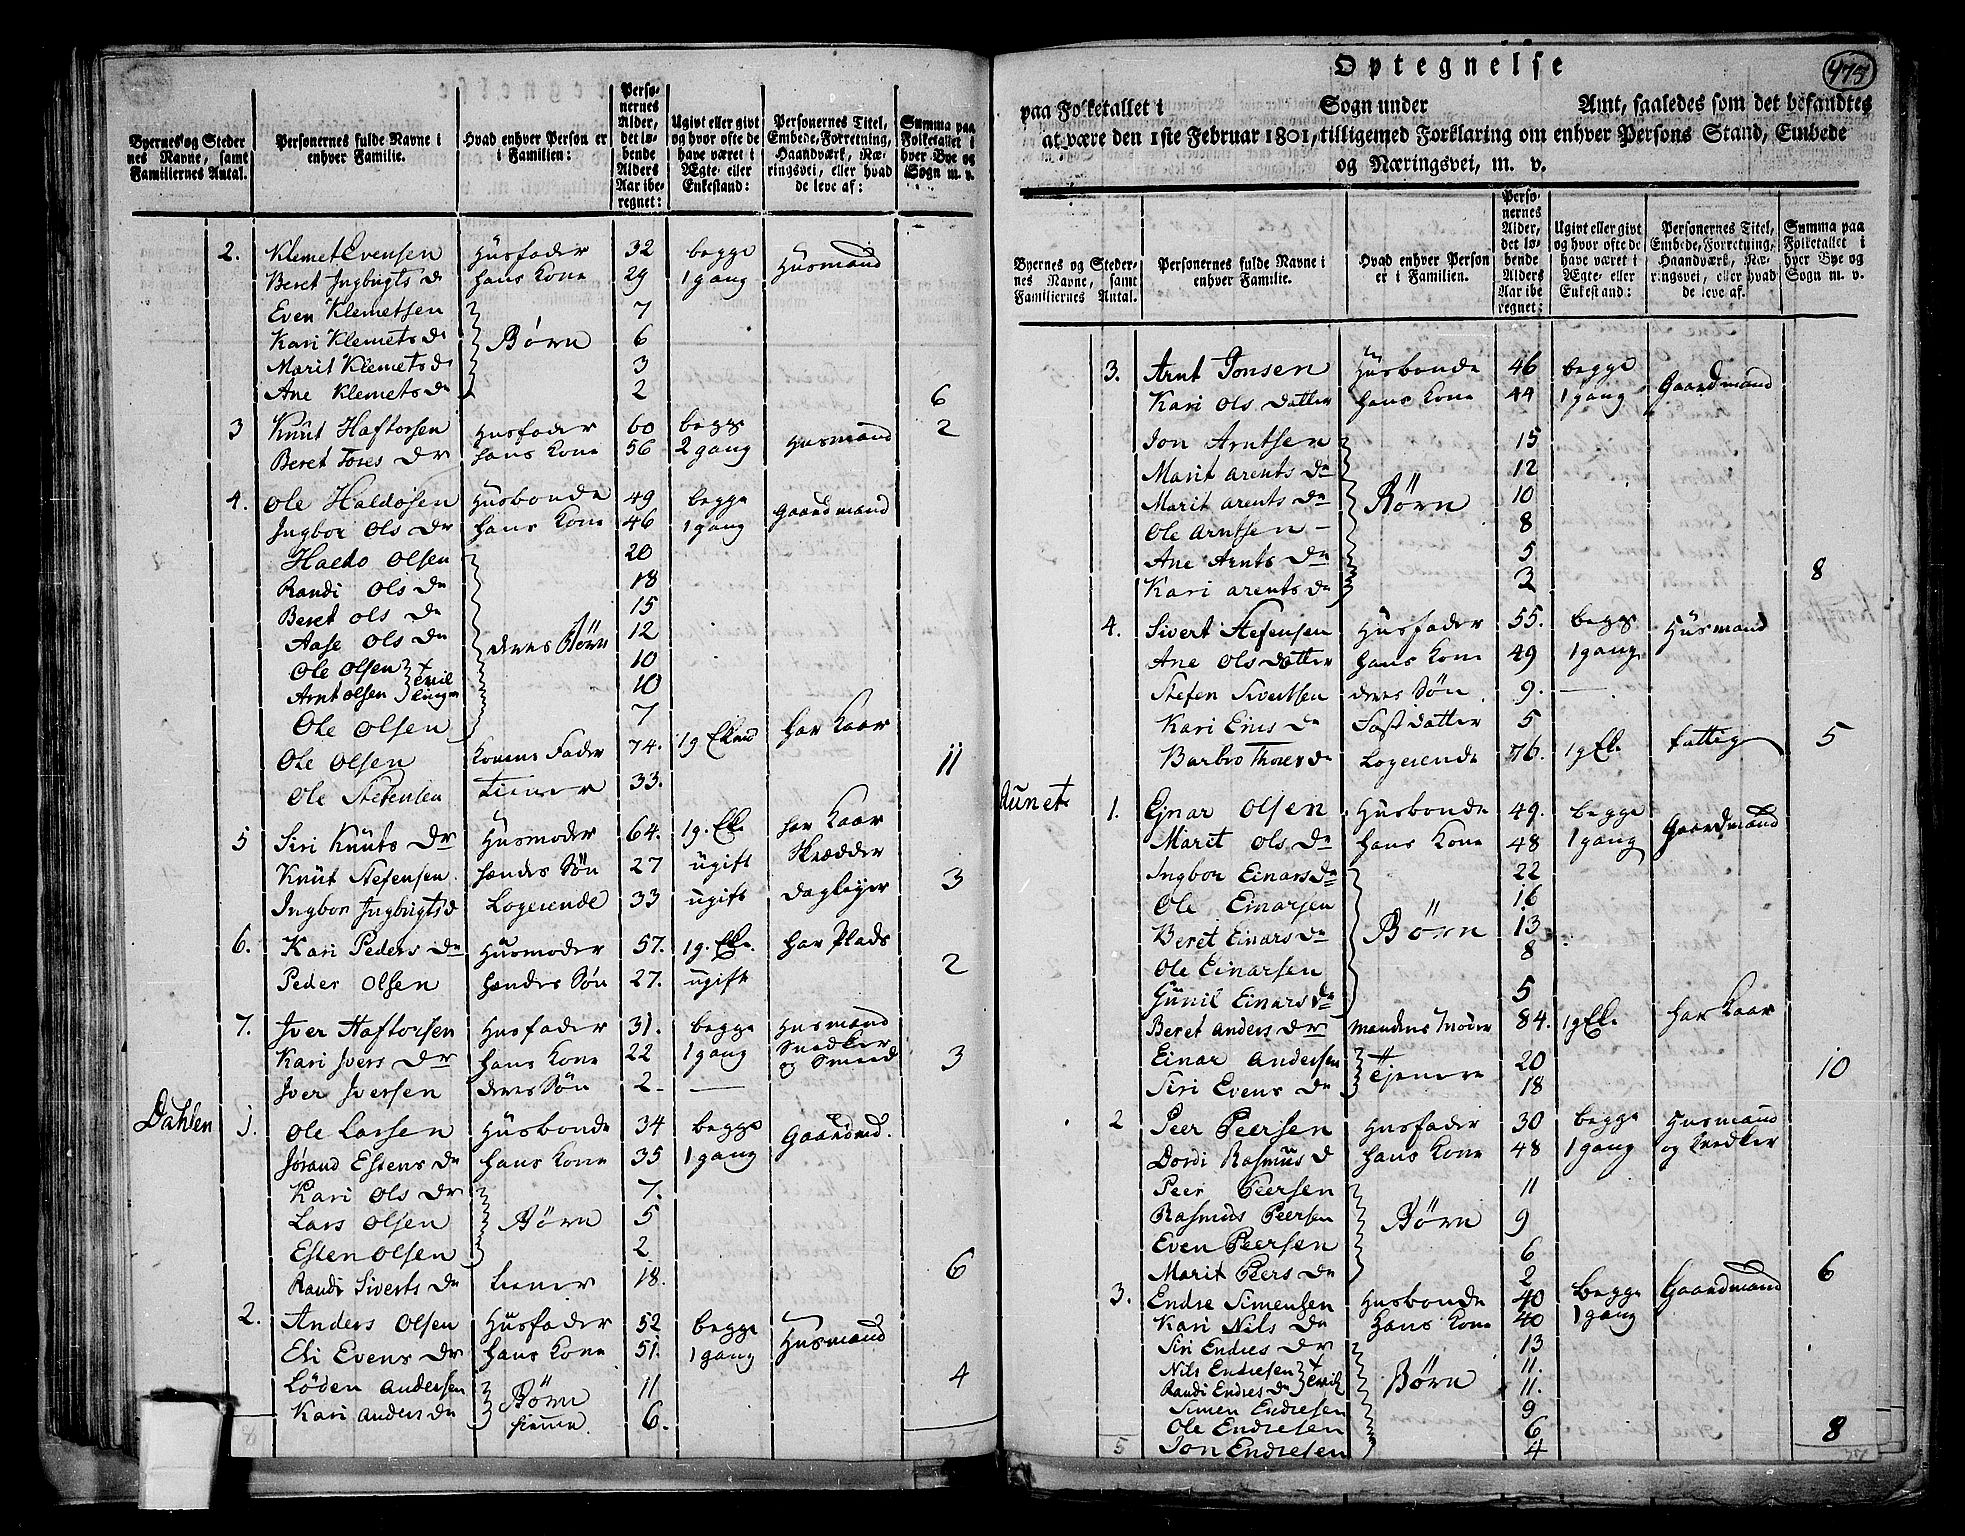 Byernes og Steder
nes Navne, samt
Familiernes Antal.
Personernes fulde Navne i
enhver Familie.
Hvad enhver Person er
i Familien:
Perso-
nernes
Alder,
det lø-
bende
Alders
Aar ibe-
regnet:
Ugivt eller givt
og hvor ofte de
have været i
Ægte- eller
Enkestand:
Personernes Titel,
Embede, Forretning,
Haandværk, Næ-
ringsvei, eller hvad
de leve af:
Summa paa
Folketallet i
hver Bye og
Sogn m. v.
2. Klemet Evensen Husfader 32 begge Husmand
Beret Ingbrigts d hans Kone 29 1 gang
Even Klemetsen 7
Kari Klemets d Børn 6
Marit Klemets d 3
Ane Klemets dr 2 6
3 Knut Haftorsen Husfader 60 begge Husmand 2
Beret Tores Dr hans Kone 56 2 gang
4. Ole Haldosen Husbonde 49 begge Gaardmand
Ingbor Ols Dr hans Kone 46 1 gang
Haldo Olsen 20
Randi Ols dr 18
Beret Ols dr 15
Aase Ols Dr deres Børn 12
Ole Olsen 10
Arnt Olsen 10
Ole Olsen 7
Ole Olsen Konens Fader 74. 1g Ekmd har Kaar 11
Ole Stefensen tiener 33.
5 Siri Knuts Dr Husmoder 64. 1g. Eke har Kaar
Knut Stefensen hendes Søn 27 ugift Skrædder 3
Ingbor Ingbrigts d Logerende 33 ugift Daglejer
6. Kari Peders Dr Husmoder 57. 1g. Eke. har Plads
Peder Olsen hendes Søn 27. ugift 2
7. Iver Haftorsen Husfader 31. begge Husmand
Kari Ivers Dr hans Kone 22 1 gang Snedker og Smed 3
Iver Iversen deres Søn 2
Dahlen 1. Ole Larsen Husbonde 34 begge Gaardmd.
Jørand Estens dr hans Kone 35 1 gang
Kari Ols Dr 7.
Lars Olsen Børn 5
Esten Olsen 2
Randi Siverts Dr tiener 18. 6
2. Anders Olsen Husfader 52 begge Husmand
Eli Evens Dr hans Kone 51. 1 gang
Løden Andersen Børn 11 4
Kari Anders dr hiemme 6.
8 37
Optegnelse
475
paa Folketallet i Sogn under Amt, saaledes som det befandtes
at være den 1ste Februar 1801, tilligemed Forklaring om enhver Persons Stand, Embede
og Næringsvei, m. v.
Byernes og Steder-
nes Navne, samt
Familiernes Antal.
Personernes fulde Navne i
enhver Familie.
Hvad enhver Person
er i Familien.
Perso-
nernes
Alder,
det lø-
bende
Alders
Aar ibe
regnet:
Ugivt eller givt
og hvor ofte de
have været i
Ægte- eller
Enkestand:
Personernes Titel,
Embede, Forretning,
Haandværk, Næ-
ringsvei, eller hvad
de leve af.
Summa paa
Folketallet i
hver Bye og
Sogn m. v.
3. Arnt Jonsen Husbonde 46 begge Gaardmand
Kari Ols Datter hans Kone 44 1 gang
Jon Arntsen 15
Marit Arents Dr 12
Marit Arents Dr Børn 10
Ole Arntsen 8
Ane Arnts Dr 5
Kari Arents dr 3 8
4. Sivert Stefensen Husfader 55. begge Husmand
Ane Ols Datter hans Kone 49 1 gang
Stefen Sivertsen deres Søn 9.
Kari Eins Dr Fostdatter 5
Barbro Thores dr Logerende 76. 1g Eke fattig 5
Aunet 1. Ejnar Olsen Husbonde 49. begge Gaardmand
Marit Ols Dr hans Kone 48 1 gang
Ingbor Einars Dr 22
Ole Einarsen 16
Beret Einars Dr Børn 13
Ole Einarsen 8
Gunil Einars Dr 5
Beret Anders Dr Mandens Moder 84. 1g Eke har Kaar
Einar Andersen Tjenere 20 10
Siri Evens Dr 18
2 Peer Peersen Husfader 30 begge Husmand
Dordi Rasmus D hans Kone 48 1 gang og Snedker
Peer Peersen 11
Rasmus Peersen Børn 9
Even Peersen 6
Marit Peers Dr 2 6
3. Endre Simensen Husbonde 40 begge Gaardmand
Kari Nils Dr hans Kone 40 1 gang
Siri Endres Dr 13
Nils Endresen 11.
Randi Endres Dr Børn 11.
Simen Endresen 9
Ole Endresen 6 8
5 Jon Endresen 4